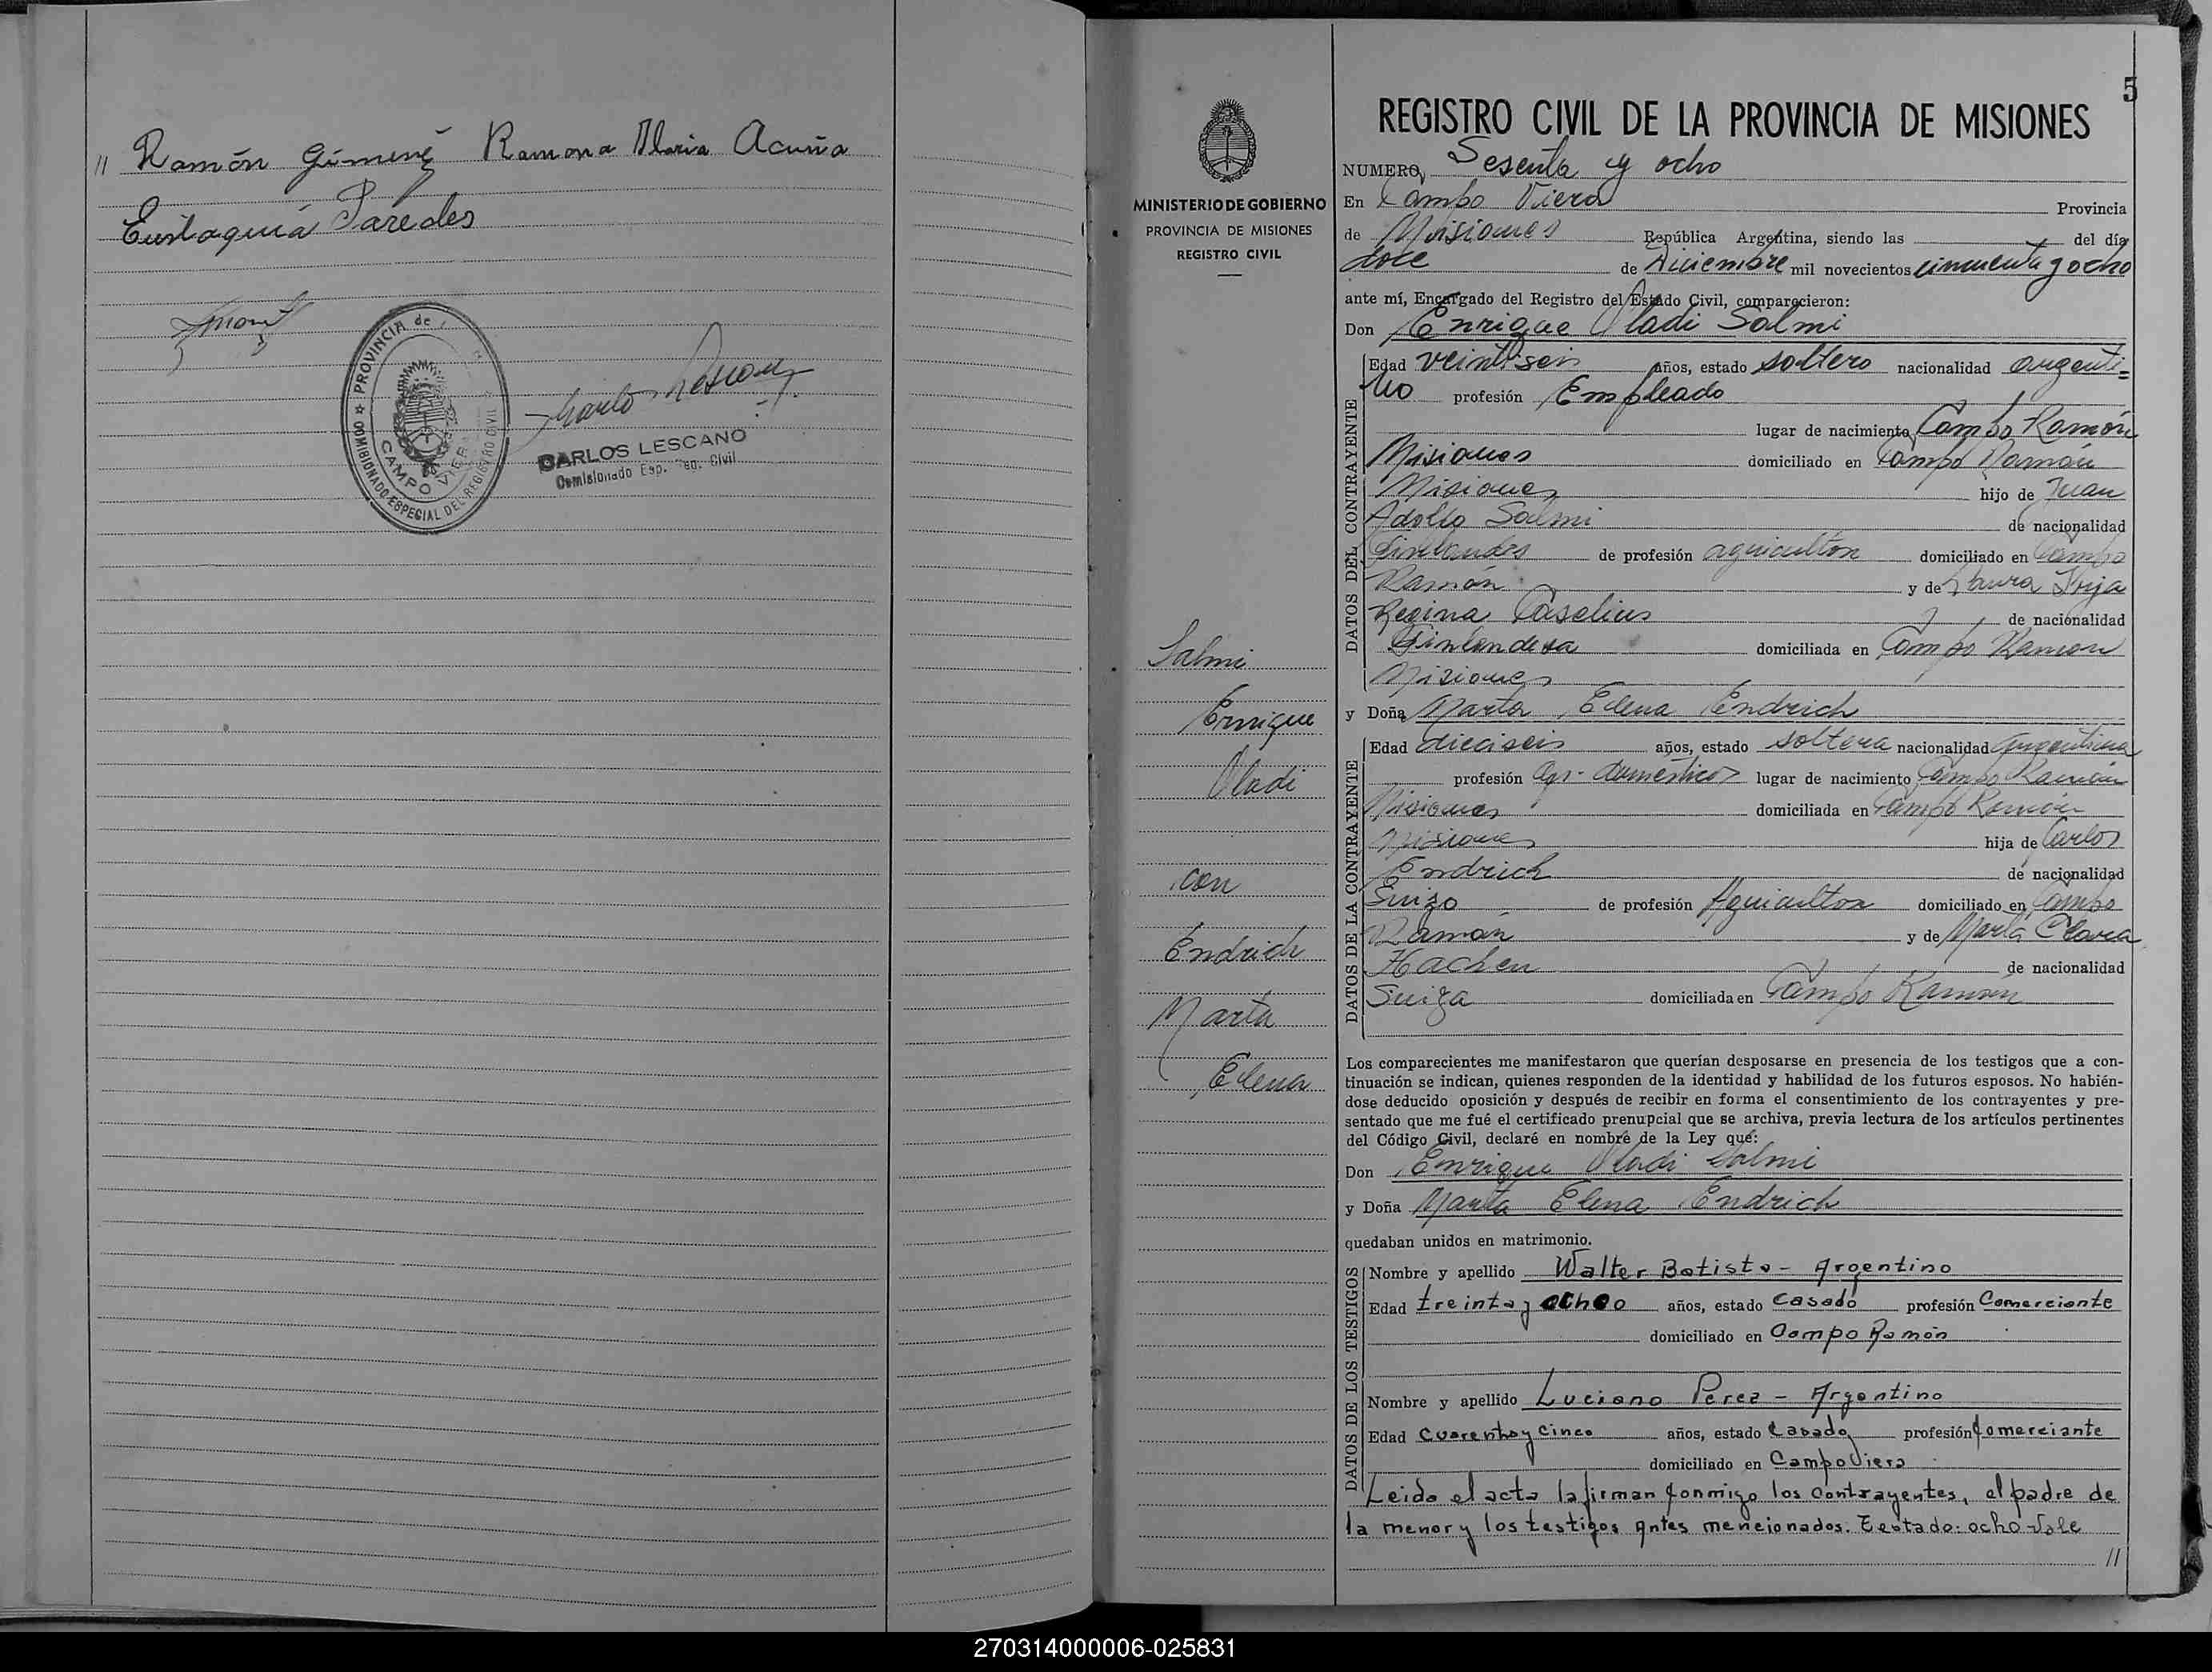 " Ramón Gimenez Ramona Maria Acuña
Eustaquia Paredes
PROVINCIA de
COMISIONADO ESPECIAL DEL REGISTRO CIVIL
CAMPO VIERA
CARLOS LESCANO
Comisionado Esp. Reg. Civil
5
MINISTERIO DE GOBIERNO
PROVINCIA DE MISIONES
REGISTRO CIVIL
Salmi
Enrique
Oladi
con
Endrich
Marta
Elena
REGISTRO CIVIL DE LA PROVINCIA DE MISIONES
NUMERO Sesenta y ocho
En Campo Viera Provincia
de Misiones República Argentina, siendo las del día
doce de Diciembre mil novecientos cincuenta y ocho
ante mí, Encargado del Registro del Estado Civil, comparecieron:
Don Enrique Oladi Salmi
DATOS DEL CONTRAYENTE
Edad veintiseis años, estado soltero nacionalidad argenti=
no profesión Empleado
lugar de nacimiento Campo Ramón
Misiones domiciliado en Campo Ramón
Misiones hijo de Juan
Adolfo Salmi de nacionalidad
Finlandes de profesión agricultor domiciliado en Campo
Ramón y de Laura
Regina Caselius de nacionalidad
Finlandesa domiciliada en Campo Ramon
Misiones
y Doña Marta Elena Endrich
DATOS DE LA CONTRAYENTE
Edad dieciseis años, estado soltera nacionalidad Argentina
profesión Qgs. domésticos lugar de nacimiento Campo Ramón
Misiones domiciliada en Campo Ramón
Misiones hija de Carlos
Endrich de nacionalidad
Suizo de profesión Agricultor domiciliado en Campo
Ramón y de Marta Clara
Hachen de nacionalidad
Suiza domiciliada en Campo Ramón
Los comparecientes me manifestaron que querían desposarse en presencia de los testigos que a con-
tinuación se indican, quienes responden de la identidad y habilidad de los futuros esposos. No habién-
dose deducido oposición y después de recibir en forma el consentimiento de los contrayentes y pre-
sentado que me fué el certificado prenupcial que se archiva, previa lectura de los artículos pertinentes
del Código Civil, declaré en nombre de la Ley que:
Don Enrique Oladi Salmi
y Doña Marta Elena Endrich
quedaban unidos en matrimonio.
DATOS DE LOS TESTIGOS
Nombre y apellido Walter Batista - Argentino
Edad treinta y ocho años, estado casado profesión Comerciante
domiciliado en Campo Ramón
Nombre y apellido Luciano Perez - Argentino
Edad cuarenta y cinco años, estado Casado profesión Comerciante
domiciliado en Campo Viera
Leida el acta la firman conmigo los contrayentes, el padre de
la menor y los testigos antes mencionados. Testado: ocho Vale
//
270314000006-025831